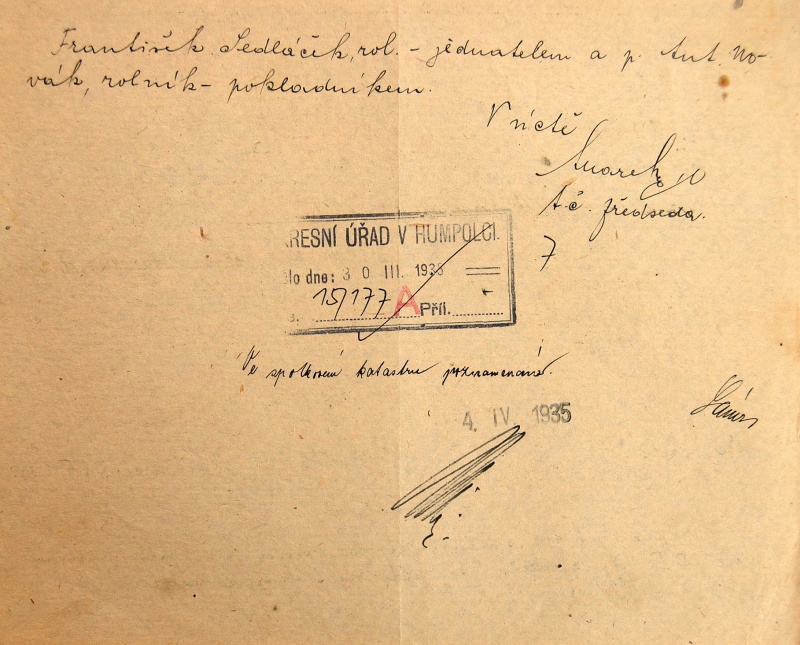 František Sedláček, rol. - jednatelem a p. Ant. No-
vák, rolník - pokladníkem.
V úctě
t.č. předseda.
7
KRESNÍ ÚŘAD V HUMPOLCI.
lo dne: 30 III. 1935
15177 A Příl.
Ve spolkovém katastru poznamenáno.
4. IV. 1935